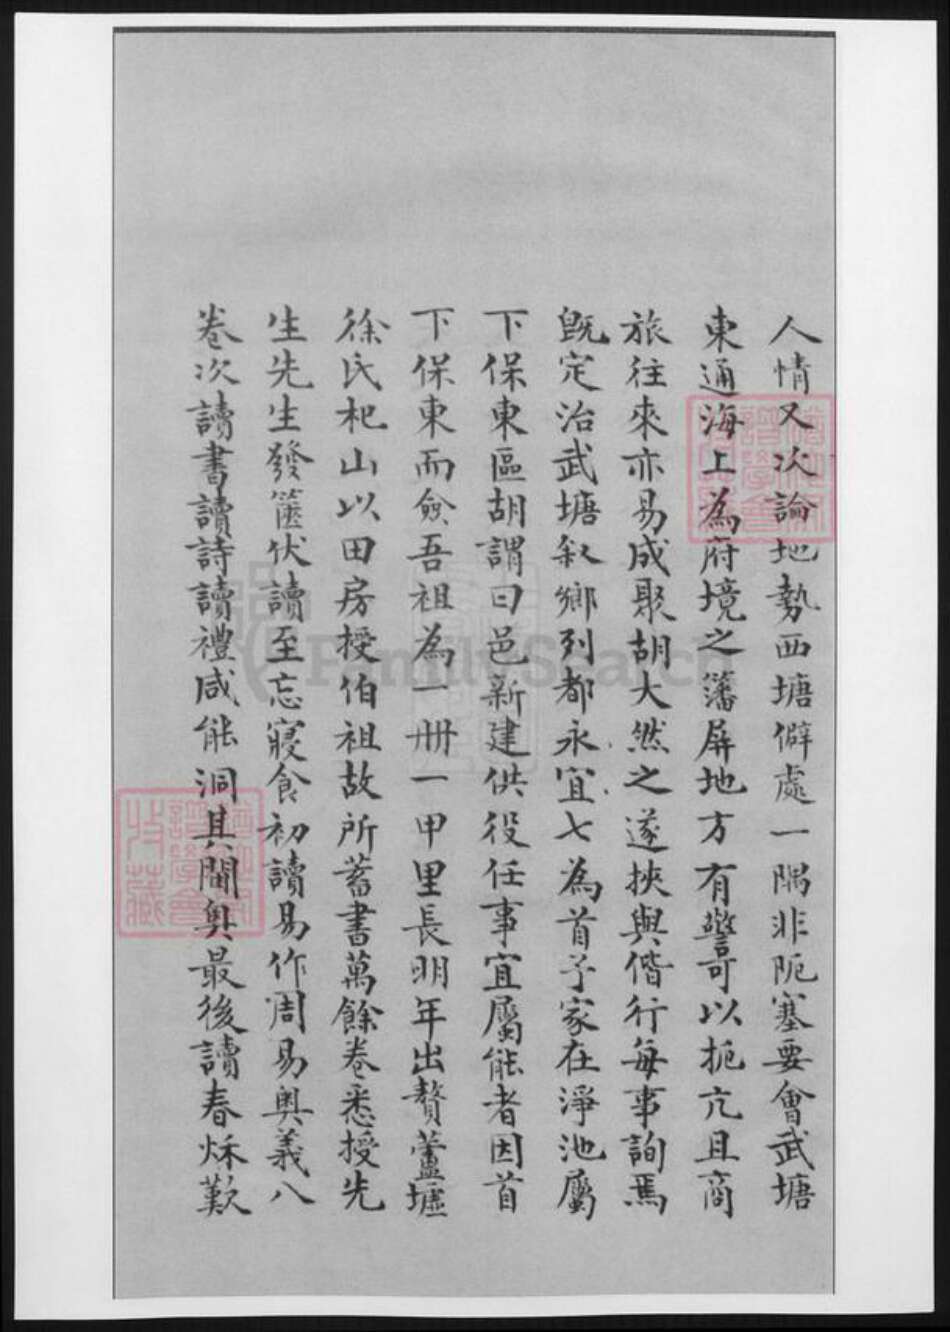 人情又次論地勢西塘僻處一隅非阨塞要會武塘
東通海上為府境之籓屏地方有警可以扼亢且商
旅往來亦易成聚胡大然之遂挾與偕行每事詢焉
既定治武塘叙鄉列都永宜七為首予家在淨池屬
下保東區胡謂曰邑新建供役任事宜屬能者因首
下保東而僉吾祖為一冊一甲里長明年出贅蘆墟
徐氏杞山以田房授伯祖故所蓄書萬餘卷悉授先
生先生發篋伏讀至忘寢食初讀易作周易奧義八
卷次讀書讀詩讀禮咸能洞其閫奧最後讀春秌歎
FamilySearch